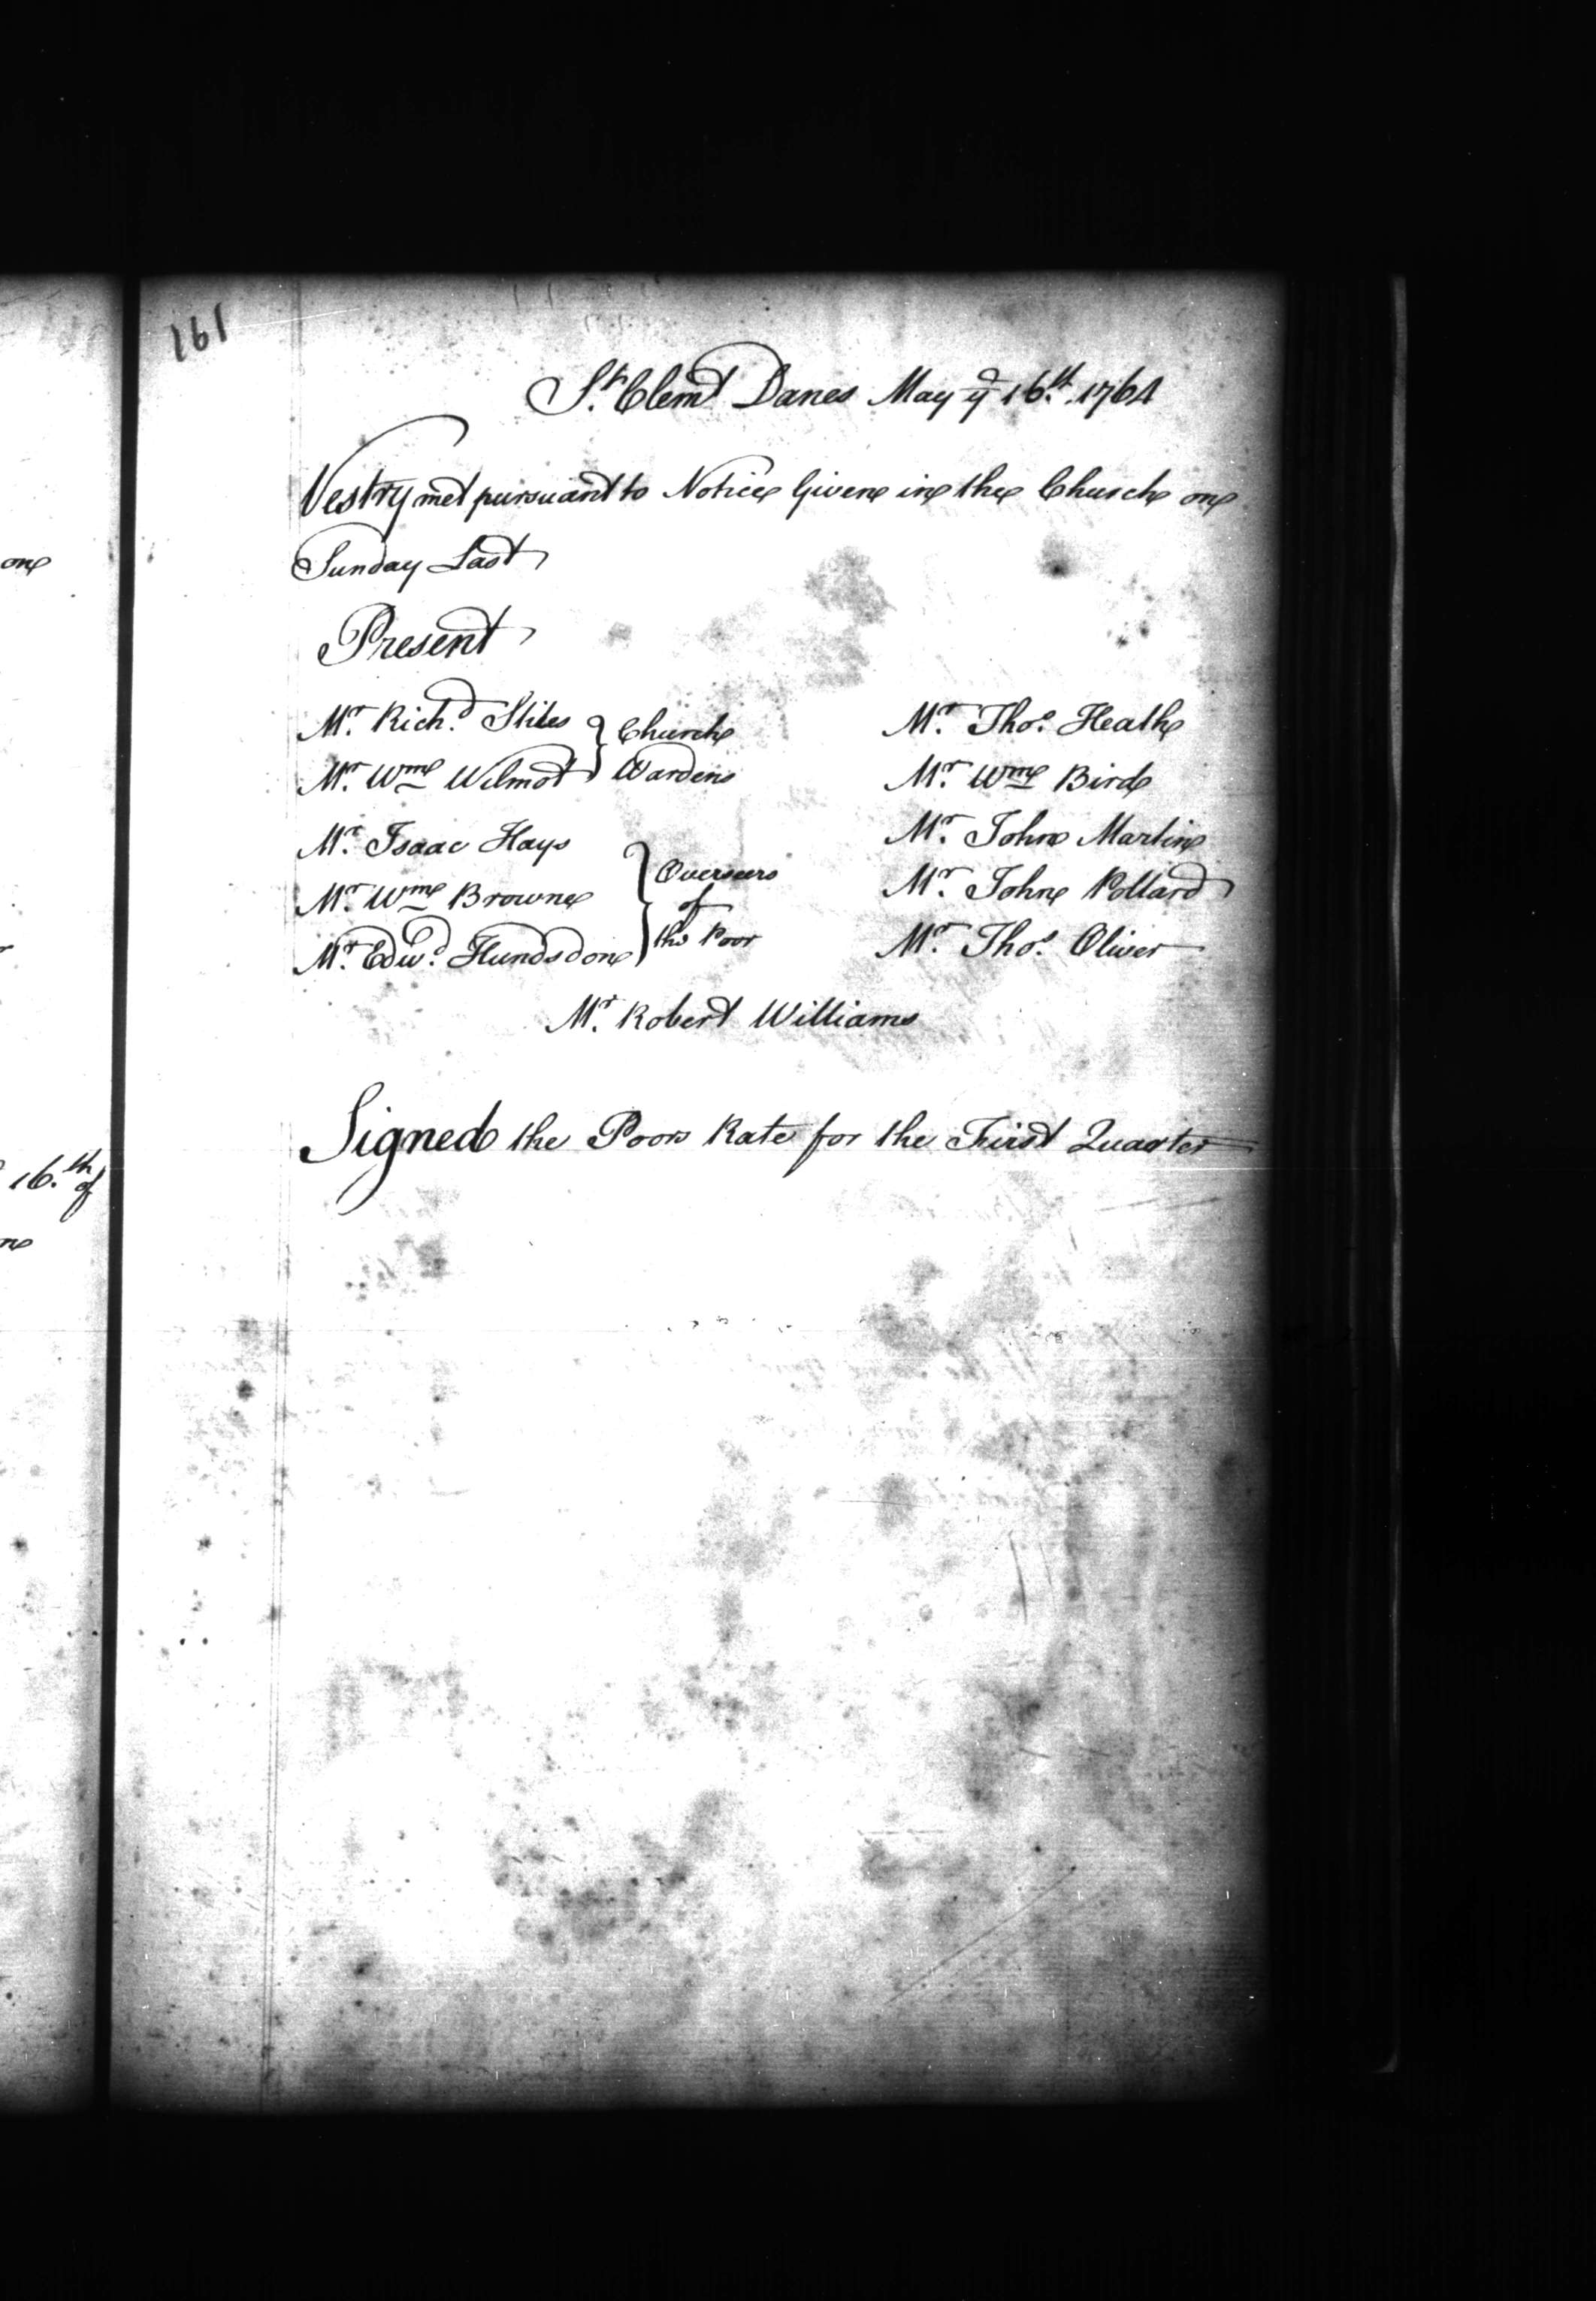 161
St. Clemt Danes May ye 16th. 1764
Vestry met pursuant to Notice Given in the Church on
Sunday Last
Present
Mr. Richd. Stiles } Church Mr. Thos. Heath
Mr. Wm Wilmot } Wardens Mr. Wm Bird
Mr. Isaac Hays Mr. John Martin
Mr. Wm Brown } Overseers of the Poor Mr. John Pollard
Mr. Edwd. Hundsdon Mr. Thos. Oliver
Mr. Robert Williams
Signed the Poors Rate for the First Quarter
on
16.th of